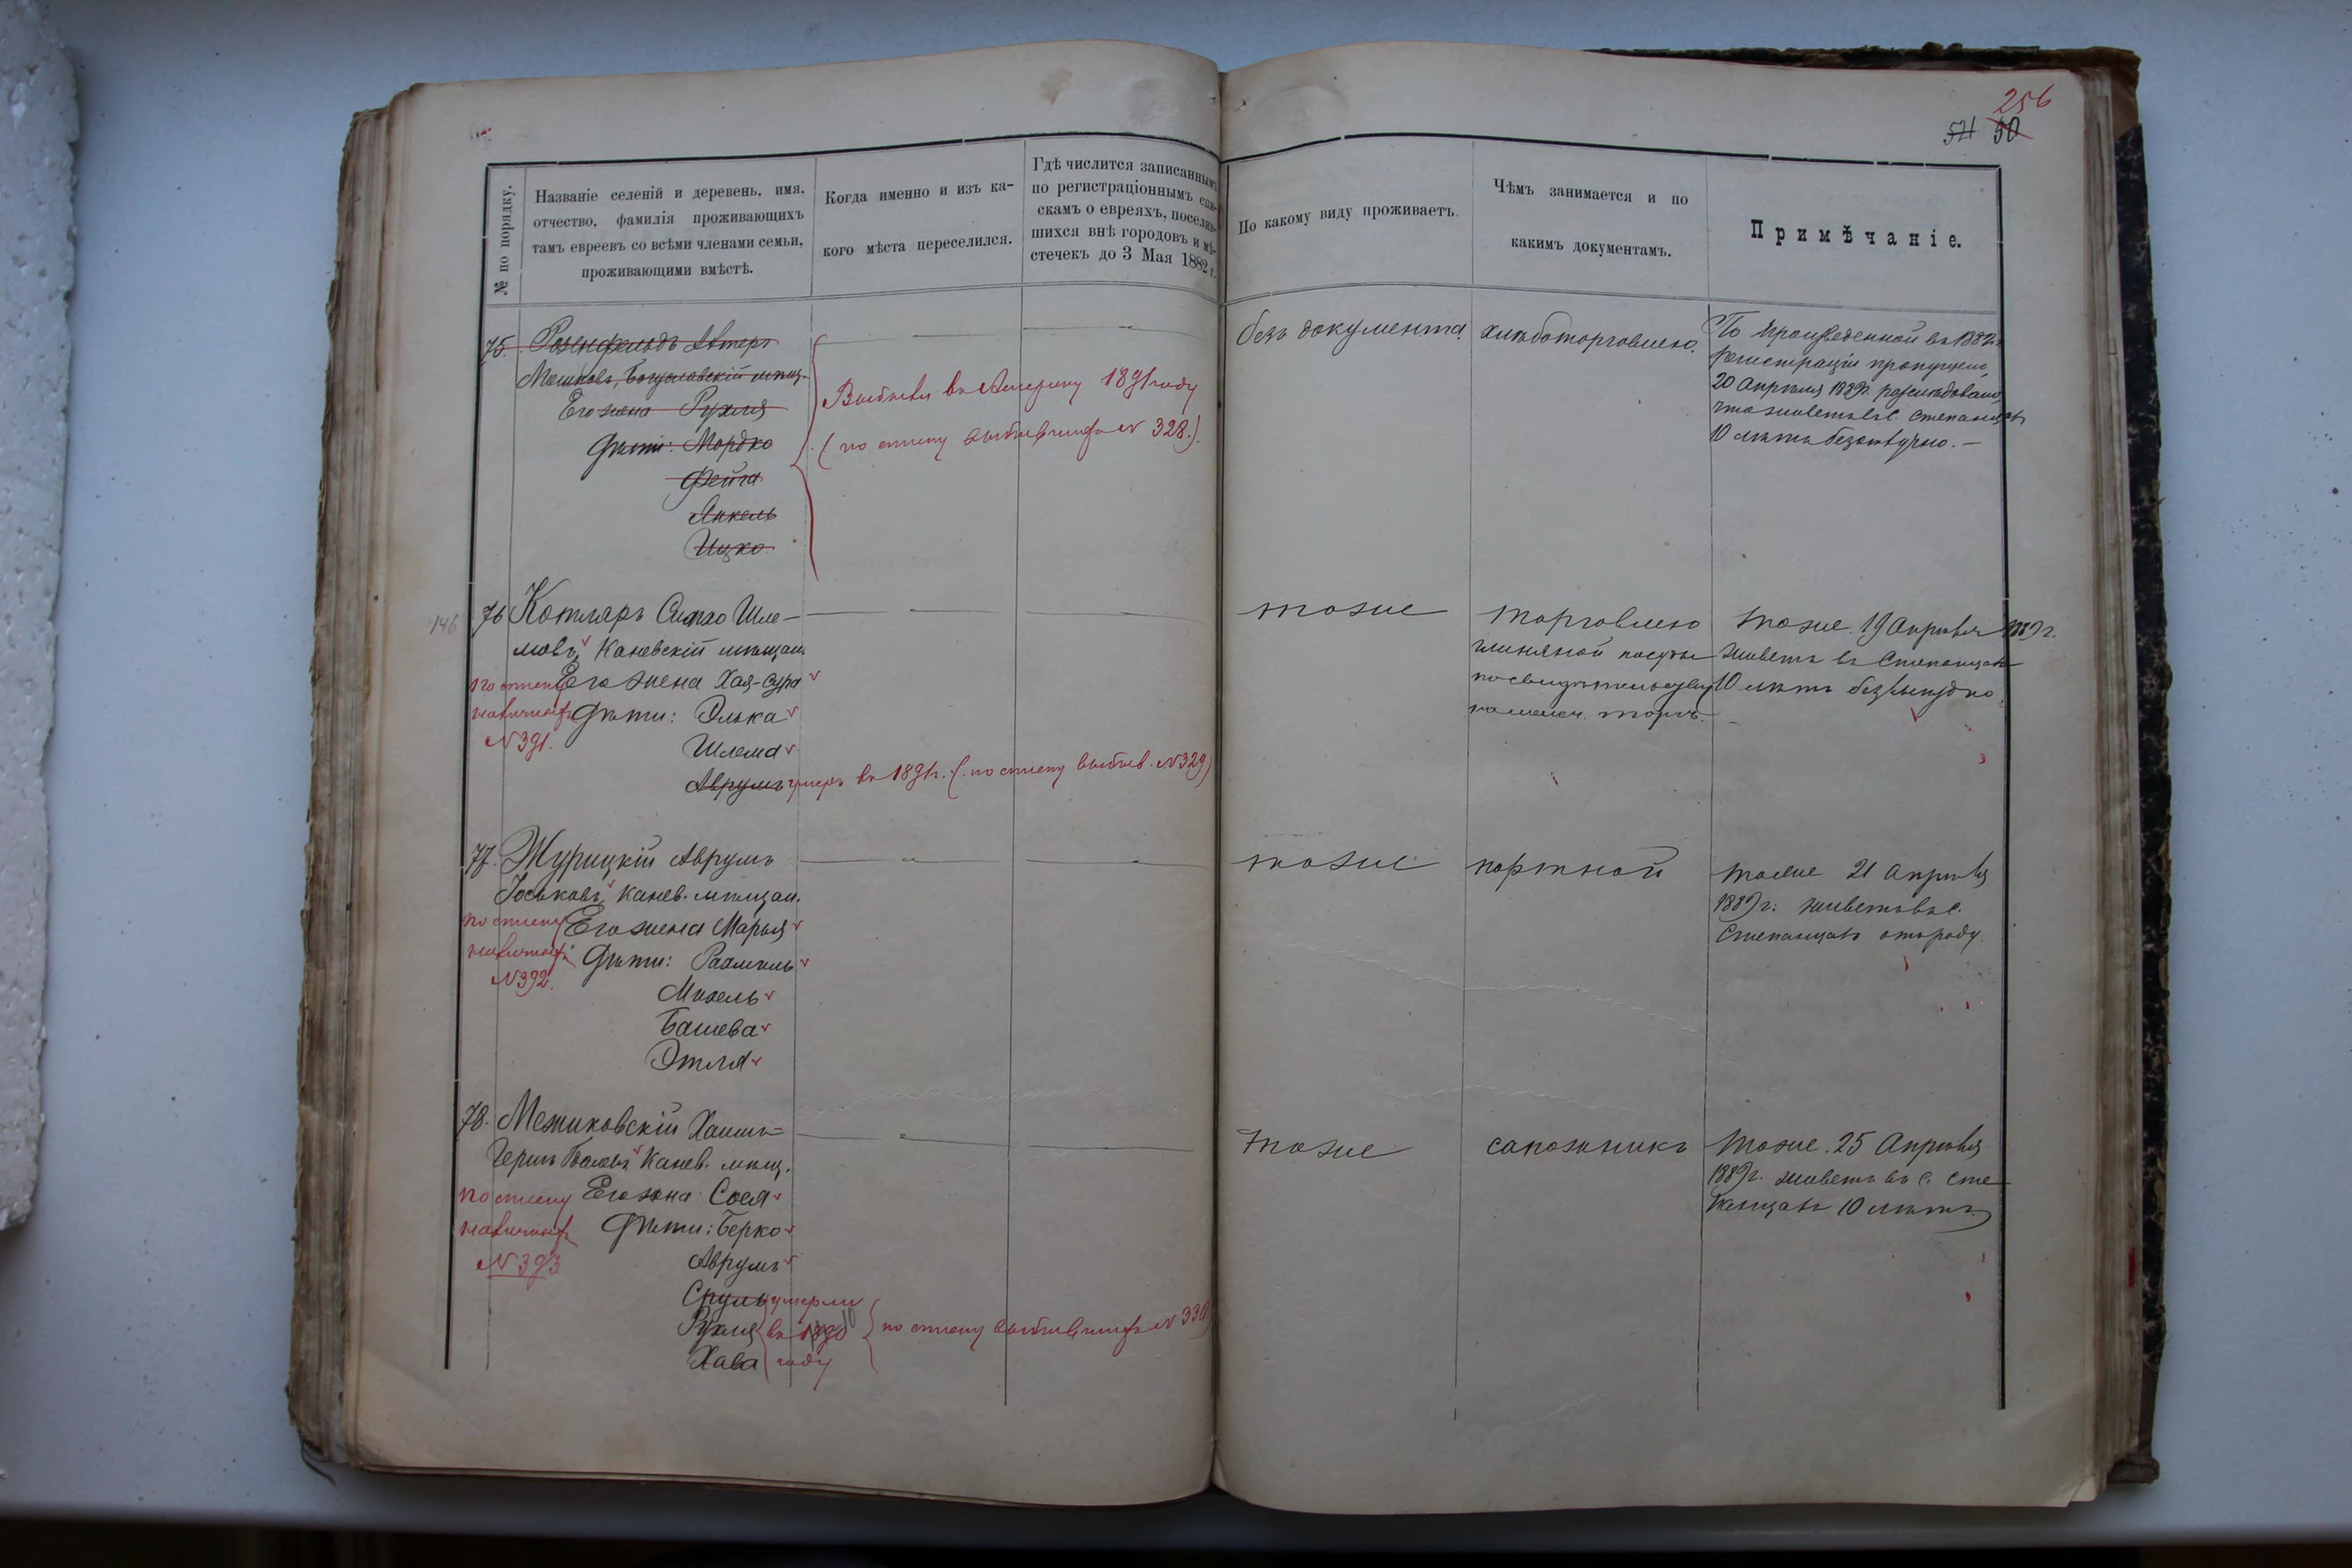 256
521 50
№ по порядку.
Названіе селеній и деревень, имя,
отчество, фамилія проживающихъ
тамъ евреевъ со всѣми членами семьи,
проживающими вмѣстѣ.
Когда именно и изъ ка-
кого мѣста переселился.
Гдѣ числится записаннымъ
по регистраціоннымъ спи-
скамъ о евреяхъ, поселив-
шихся внѣ городовъ и мѣ-
стечекъ до 3 Мая 1882 г.
По какому виду проживаетъ.
Чѣмъ занимается и по
какимъ документамъ.
Примѣчаніе.
75. Розенфельдъ
Мошковъ, Богуславскій мѣщ.
Его жена Рухля
Дѣти: Мордко
Фейга
Янкель
Ицко
Выбыли въ Америку 1891 году
(по списку выбывшихъ № 328.)
безъ документа.
хлѣботорговлею.
По произведенной въ 1882 г.
регистраціи пропущенъ,
20 Апрѣля 1889г. разслѣдовано,
что живетъ въ с. Степанцахъ
10 лѣтъ безотлучно. —
146
76 Котляръ Сихао Шле-
мовъ, Каневскій мѣщан.
Его жена Хая-Сура
Дѣти: Элька
Шлема
Аврумъ умеръ въ 1891г. (по списку выбыв. № 329)
по списку
наличныхъ
№ 391.
тоже
торговлею
глиняной посуды
по свидѣтельству
на мелоч. торгъ.
тоже. 19 Апрѣля 1889 г.
живетъ въ Степанцахъ
10 лѣтъ безвыѣздно
77. Журицкій Аврумъ
Іоськовъ, Канев. мѣщан.
Его жена Марья
Дѣти: Рахмиль
Михель
Башева
Этля
по списку
наличныхъ
№ 392.
тоже
портной
тоже 21 Апрѣля
1889 г. живетъ въ с.
Степанцахъ отъ роду.
78. Межиковскій Хаимъ=
Гершъ Канев. мѣщ.
Его жена Сося
Дѣти: Берко
Аврумъ
Сруль
Рухля
Хава
умерли
въ 1890
году
по списку выбывшихъ № 330
по списку
наличныхъ
№ 393
тоже
сапожникъ
тоже. 25 Апрѣля
1889г. живетъ въ с. Сте
панцахъ 10 лѣтъ